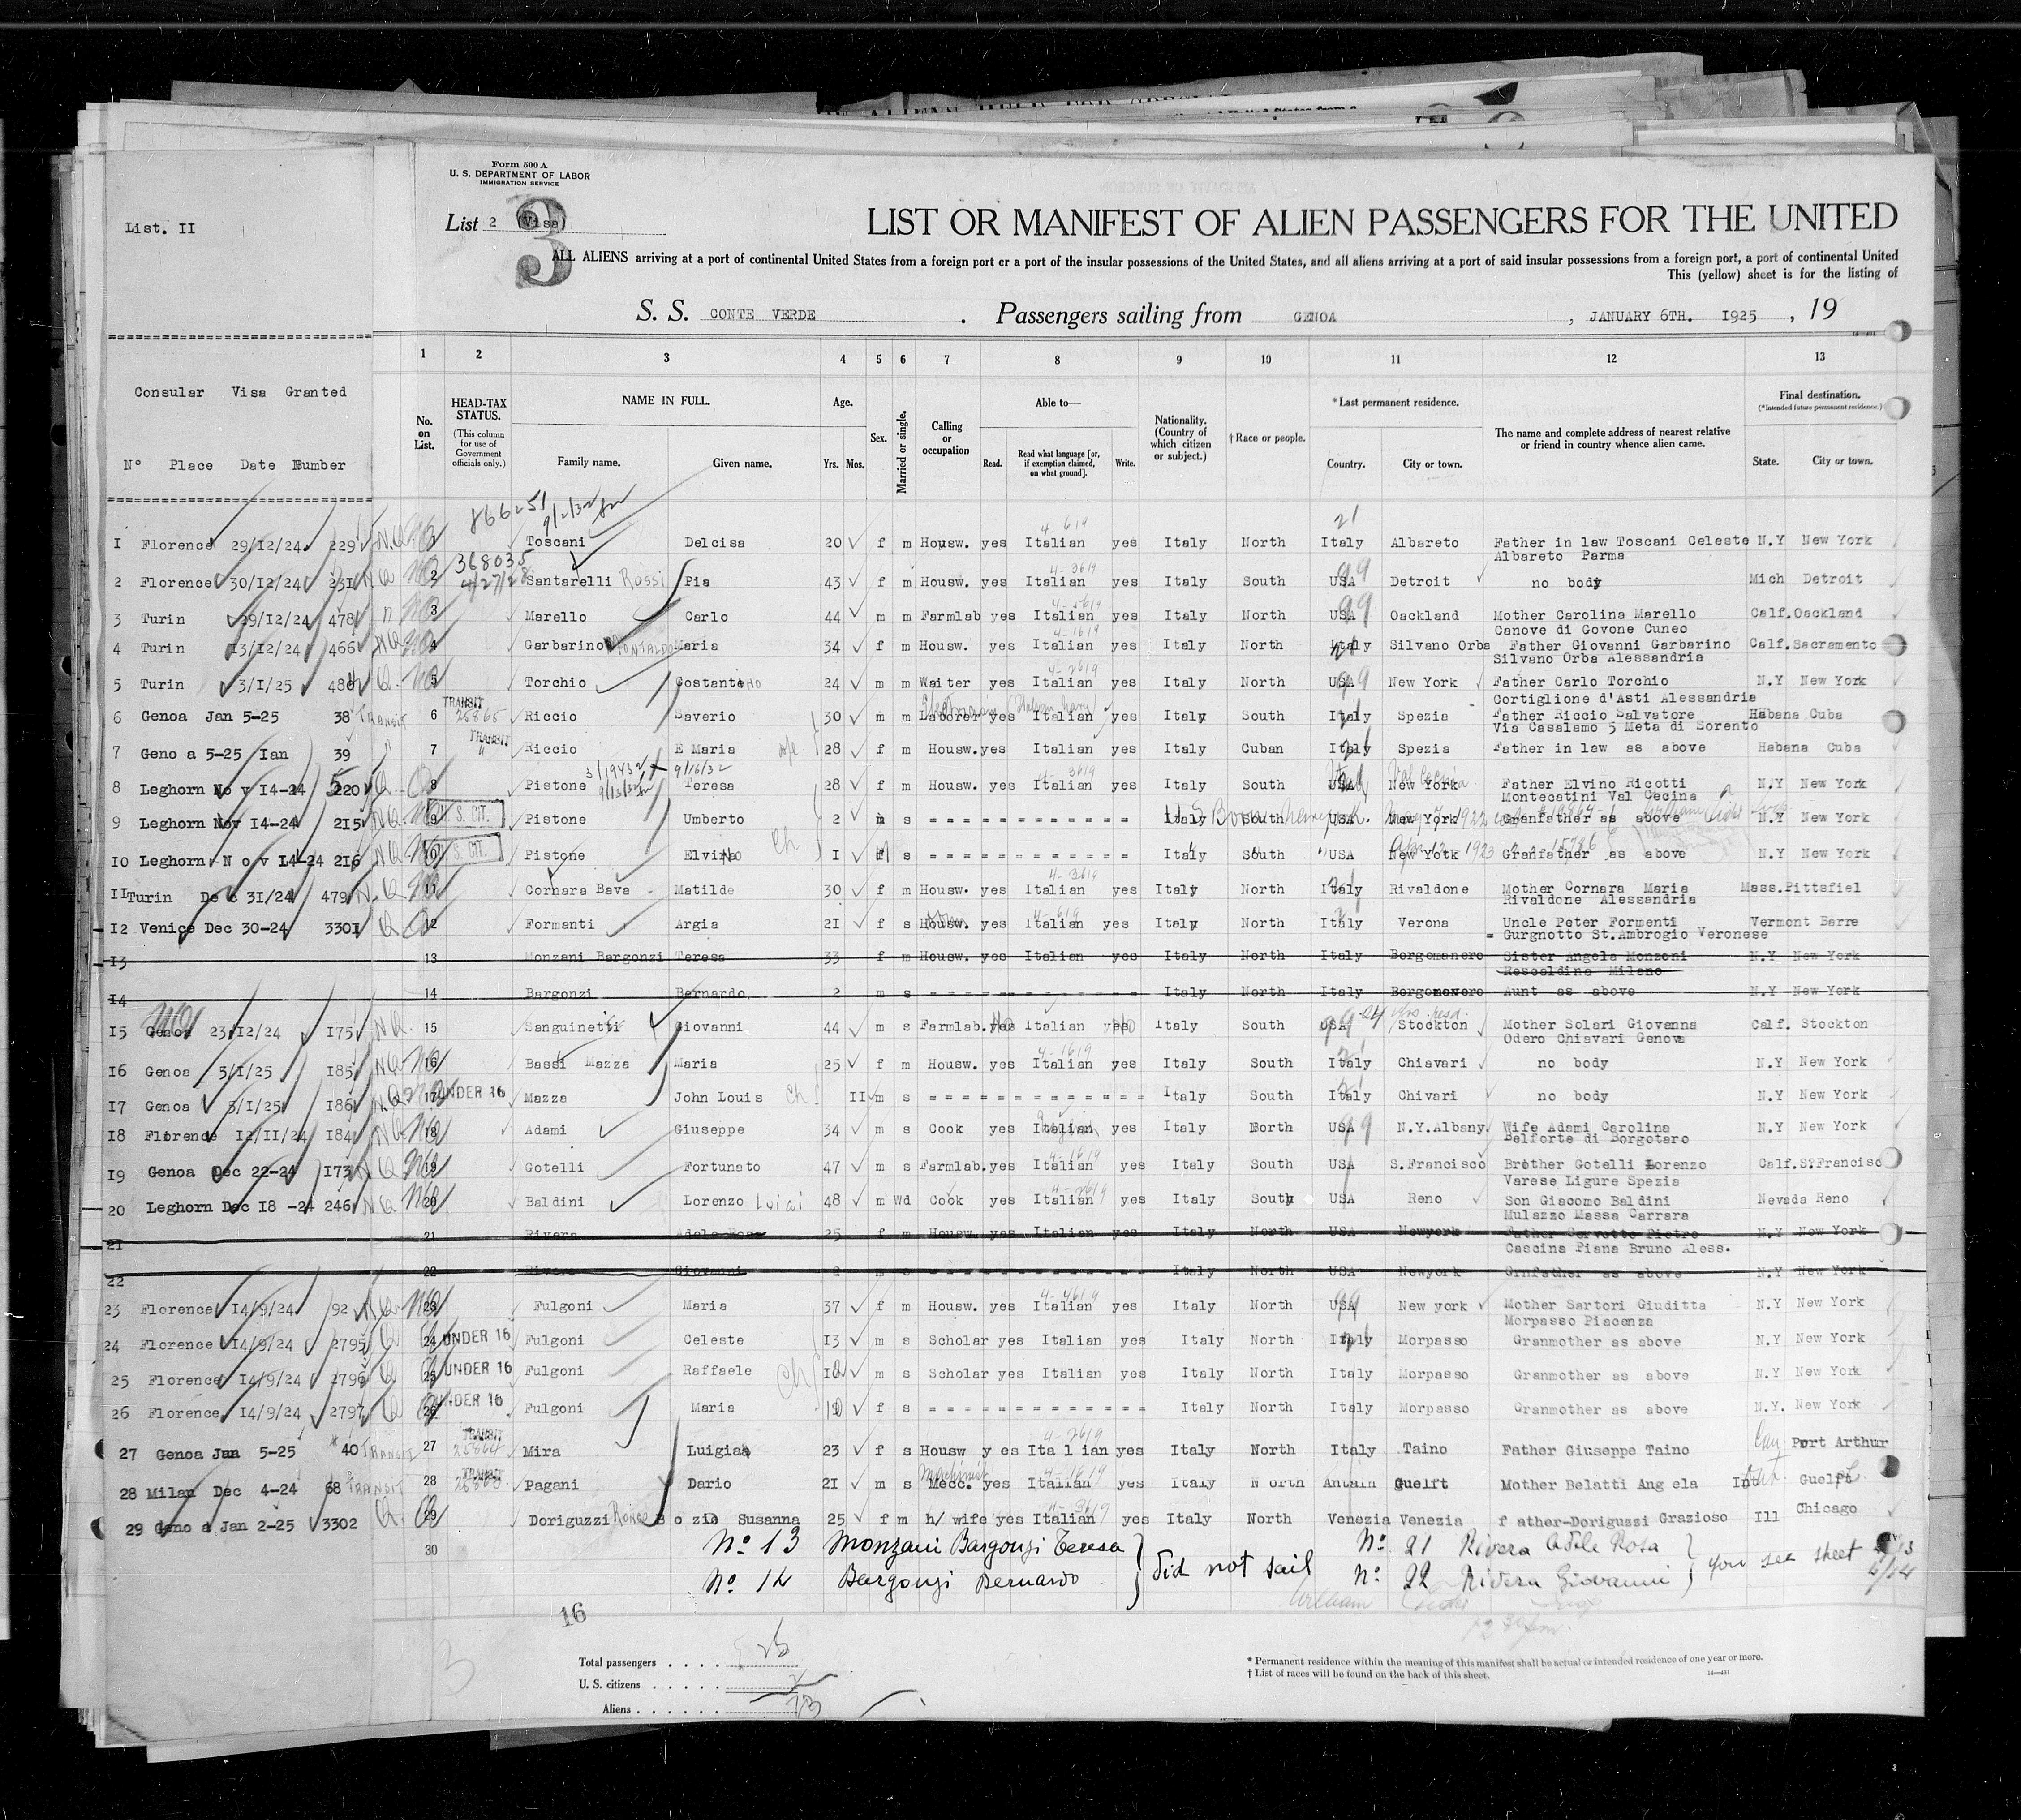 Form 500 A
U. S. DEPARTMENT OF LABOR
IMMIGRATION SERVICE
List. II
List 2 (Visa)
3
LIST OR MANIFEST OF ALIEN PASSENGERS FOR THE UNITED
ALL ALIENS arriving at a port of continental United States from a foreign port or a port of the insular possessions of the United States, and all aliens arriving at a port of said insular possessions from a foreign port, a port of continental United
This (yellow) sheet is for the listing of
S. S. CONTE VERDE . Passengers sailing from GENOA , JANUARY 6TH. 1925 , 19
1 2 3 4 5 6 7 8 9 10 11 12 13
Consular Visa Granted
Nº Place Date Number
No. on List.
HEAD-TAX STATUS. (This column for use of Government officials only.)
NAME IN FULL.
Family name. Given name.
Age.
Yrs. Mos.
Sex.
Married or single.
Calling or occupation
Able to—
Read. Read what language [or, if exemption claimed, on what ground]. Write.
Nationality. (Country of which citizen or subject.)
† Race or people.
* Last permanent residence.
Country. City or town.
The name and complete address of nearest relative or friend in country whence alien came.
Final destination.
(*Intended future permanent residence.)
State. City or town.
866251
9/2/32
I Florence 29/12/24 229 N.Q. Toscani Delcisa 20 f m Housw. yes Italian yes Italy North Italy Albareto Father in law Toscani Celeste N.Y New York
Albareto Parma
368035
4/27/28
2 Florence 30/12/24 231 2 Santarelli Rossi Pia 43 f m Housw. yes Italian yes Italy South USA Detroit no body Mich Detroit
3 Turin 29/12/24 478 3 Marello Carlo 44 m m Farmlab yes Italian yes Italy North USA Oackland Mother Carolina Marello Calf. Oackland
Canove di Govone Cuneo
4 Turin 13/12/24 466 4 Garbarino Maria 34 f m Housw. yes Italian yes Italy North Italy Silvano Orba Father Giovanni Garbarino Calf. Sacramento
Silvano Orba Alessandria
5 Turin 3/1/25 480 5 Torchio Costante 24 m m Waiter yes Italian yes Italy North USA New York Father Carlo Torchio N.Y New York
Cortiglione d'Asti Alessandria
6 Genoa Jan 5-25 38 TRANSIT 6 TRANSIT 25865 Riccio Saverio 30 m m Laborer yes Italian yes Italy South Italy Spezia Father Riccio Salvatore Habana Cuba
Via Casalamo 5 Meta di Sorento
7 Geno a 5-25 Ian 39 7 TRANSIT " Riccio E Maria wife 28 f m Housw. yes Italian yes Italy Cuban Italy Spezia Father in law as above Habana Cuba
9/16/32
8 Leghorn No v 14-24 220 Q 8 Pistone Teresa 28 f m Housw. yes Italian yes Italy South USA New York Father Elvino Ricotti N.Y New York
Montecatini Val Cecina
9 Leghorn Nov 14-24 215 N.Q. 9 U. S. CIT. Pistone Umberto 2 m s Italy South USA New York Granfather as above N.Y New York
10 Leghorn N o v 14-24 216 N.Q. 10 U. S. CIT. Pistone Elvino Ch I s Italy South USA New York Granfather as above N.Y New York
II Turin De c 31/24 479 N.Q. 11 Cornara Bava Matilde 30 f m Housw. yes Italian yes Italy North Italy Rivaldone Mother Cornara Maria Mass. Pittsfiel
Rivaldone Alessandria
I2 Venice Dec 30-24 3301 Q 12 Formanti Argia 21 f s Housw. yes Italian yes Italy North Italy Verona Uncle Peter Formenti Vermont Barre
= Gurgnotto St.Ambrogio Veronese
I3 13 Monzani Bargonzi Teresa 33 f m Housw. yes Italian yes Italy North Italy Borgomanero Sister Angela Monzoni N.Y New York
Rescaldina Milano
I4 14 Bargonzi Bernardo 2 m s Italy North Italy Borgomanero Aunt as above N.Y New York
I5 Genoa 23/12/24 175 N.Q. 15 Sanguinetti Giovanni 44 m s Farmlab. yes Italian yes Italy South USA Stockton Mother Solari Giovanna Calf. Stockton
Odero Chiavari Genova
I6 Genoa 3/1/25 185 N.Q. 16 Bassi Mazza Maria 25 f m Housw. yes Italian yes Italy South Italy Chiavari no body N.Y New York
I7 Genoa 3/1/25 186 N.Q. 17 UNDER 16 Mazza John Louis Ch II m s Italy South Italy Chivari no body N.Y New York
I8 Florence 12/11/24 184 N.Q. 18 Adami Giuseppe 34 m s Cook yes Italian yes Italy North USA N.Y.Albany Wife Adami Carolina N.Y New York
Belforte di Borgotaro
I9 Genoa Dec 22-24 173 19 Gotelli Fortunato 47 m s Farmlab. yes Italian yes Italy South USA S.Francisco Brother Gotelli Lorenzo Calf.S.Francisc
Varese Ligure Spezia
20 Leghorn Dec 18 -24 246 N Q 20 Baldini Lorenzo Luigi 48 m Wd Cook yes Italian yes Italy South USA Reno Son Giacomo Baldini Nevada Reno
Mulazzo Massa Carrara
21 21 Rivera Adele Rosa 25 f m Housw. yes Italian yes Italy North USA Newyork Father Corvotto Pietro N.Y New York
Cascina Piana Bruno Aless.
22 22 Rivera Giovanni 2 m s Italy North USA Newyork Grnfather as above N.Y New York
23 Florence 14/9/24 92 23 Fulgoni Maria 37 f m Housw. yes Italian yes Italy North USA New york Mother Sartori Giuditta N.Y New York
Morpasso Piacenza
24 Florence 14/9/24 2795 Q 24 UNDER 16 Fulgoni Celeste 13 m s Scholar yes Italian yes Italy North Italy Morpasso Granmother as above N.Y New York
25 Florence 14/9/24 2796 Q 25 UNDER 16 Fulgoni Raffaele Ch m s Scholar yes Italian yes Italy North Italy Morpasso Granmother as above N.Y New York
26 Florence 14/9/24 2797 Q 26 UNDER 16 Fulgoni Maria f s Italy North Italy Morpasso Granmother as above N.Y. New York
27 Genoa Jan 5-25 40 TRANSIT 27 TRANSIT 25864 Mira Luigia 23 f s Housw y es Ita l ian yes Italy North Italy Taino Father Giuseppe Taino Port Arthur
28 Milan Dec 4-24 68 TRANSIT 28 TRANSIT Pagani Dario 21 m s Mecc. yes Italian yes Italy N orth Guelft Mother Belatti Ang ela Guelf
29 Geno a Jan 2-25 3302 Q. 29 Doriguzzi B o zio Susanna 25 f m h/ wife yes Italian yes Italy North Venezia Venezia f ather-Doriguzzi Grazioso Ill Chicago
30 Nº 13 Monzani Bargonzi Teresa } did not sail Nº 21 Rivera Adele Rosa } you see sheet
Nº 14 Bargonzi Bernardo Nº 22 Rivera Giovanni
16
3
Total passengers . . . . 25
U. S. citizens . . . . . 2
Aliens . . . . . . 23
* Permanent residence within the meaning of this manifest shall be actual or intended residence of one year or more.
† List of races will be found on the back of this sheet.